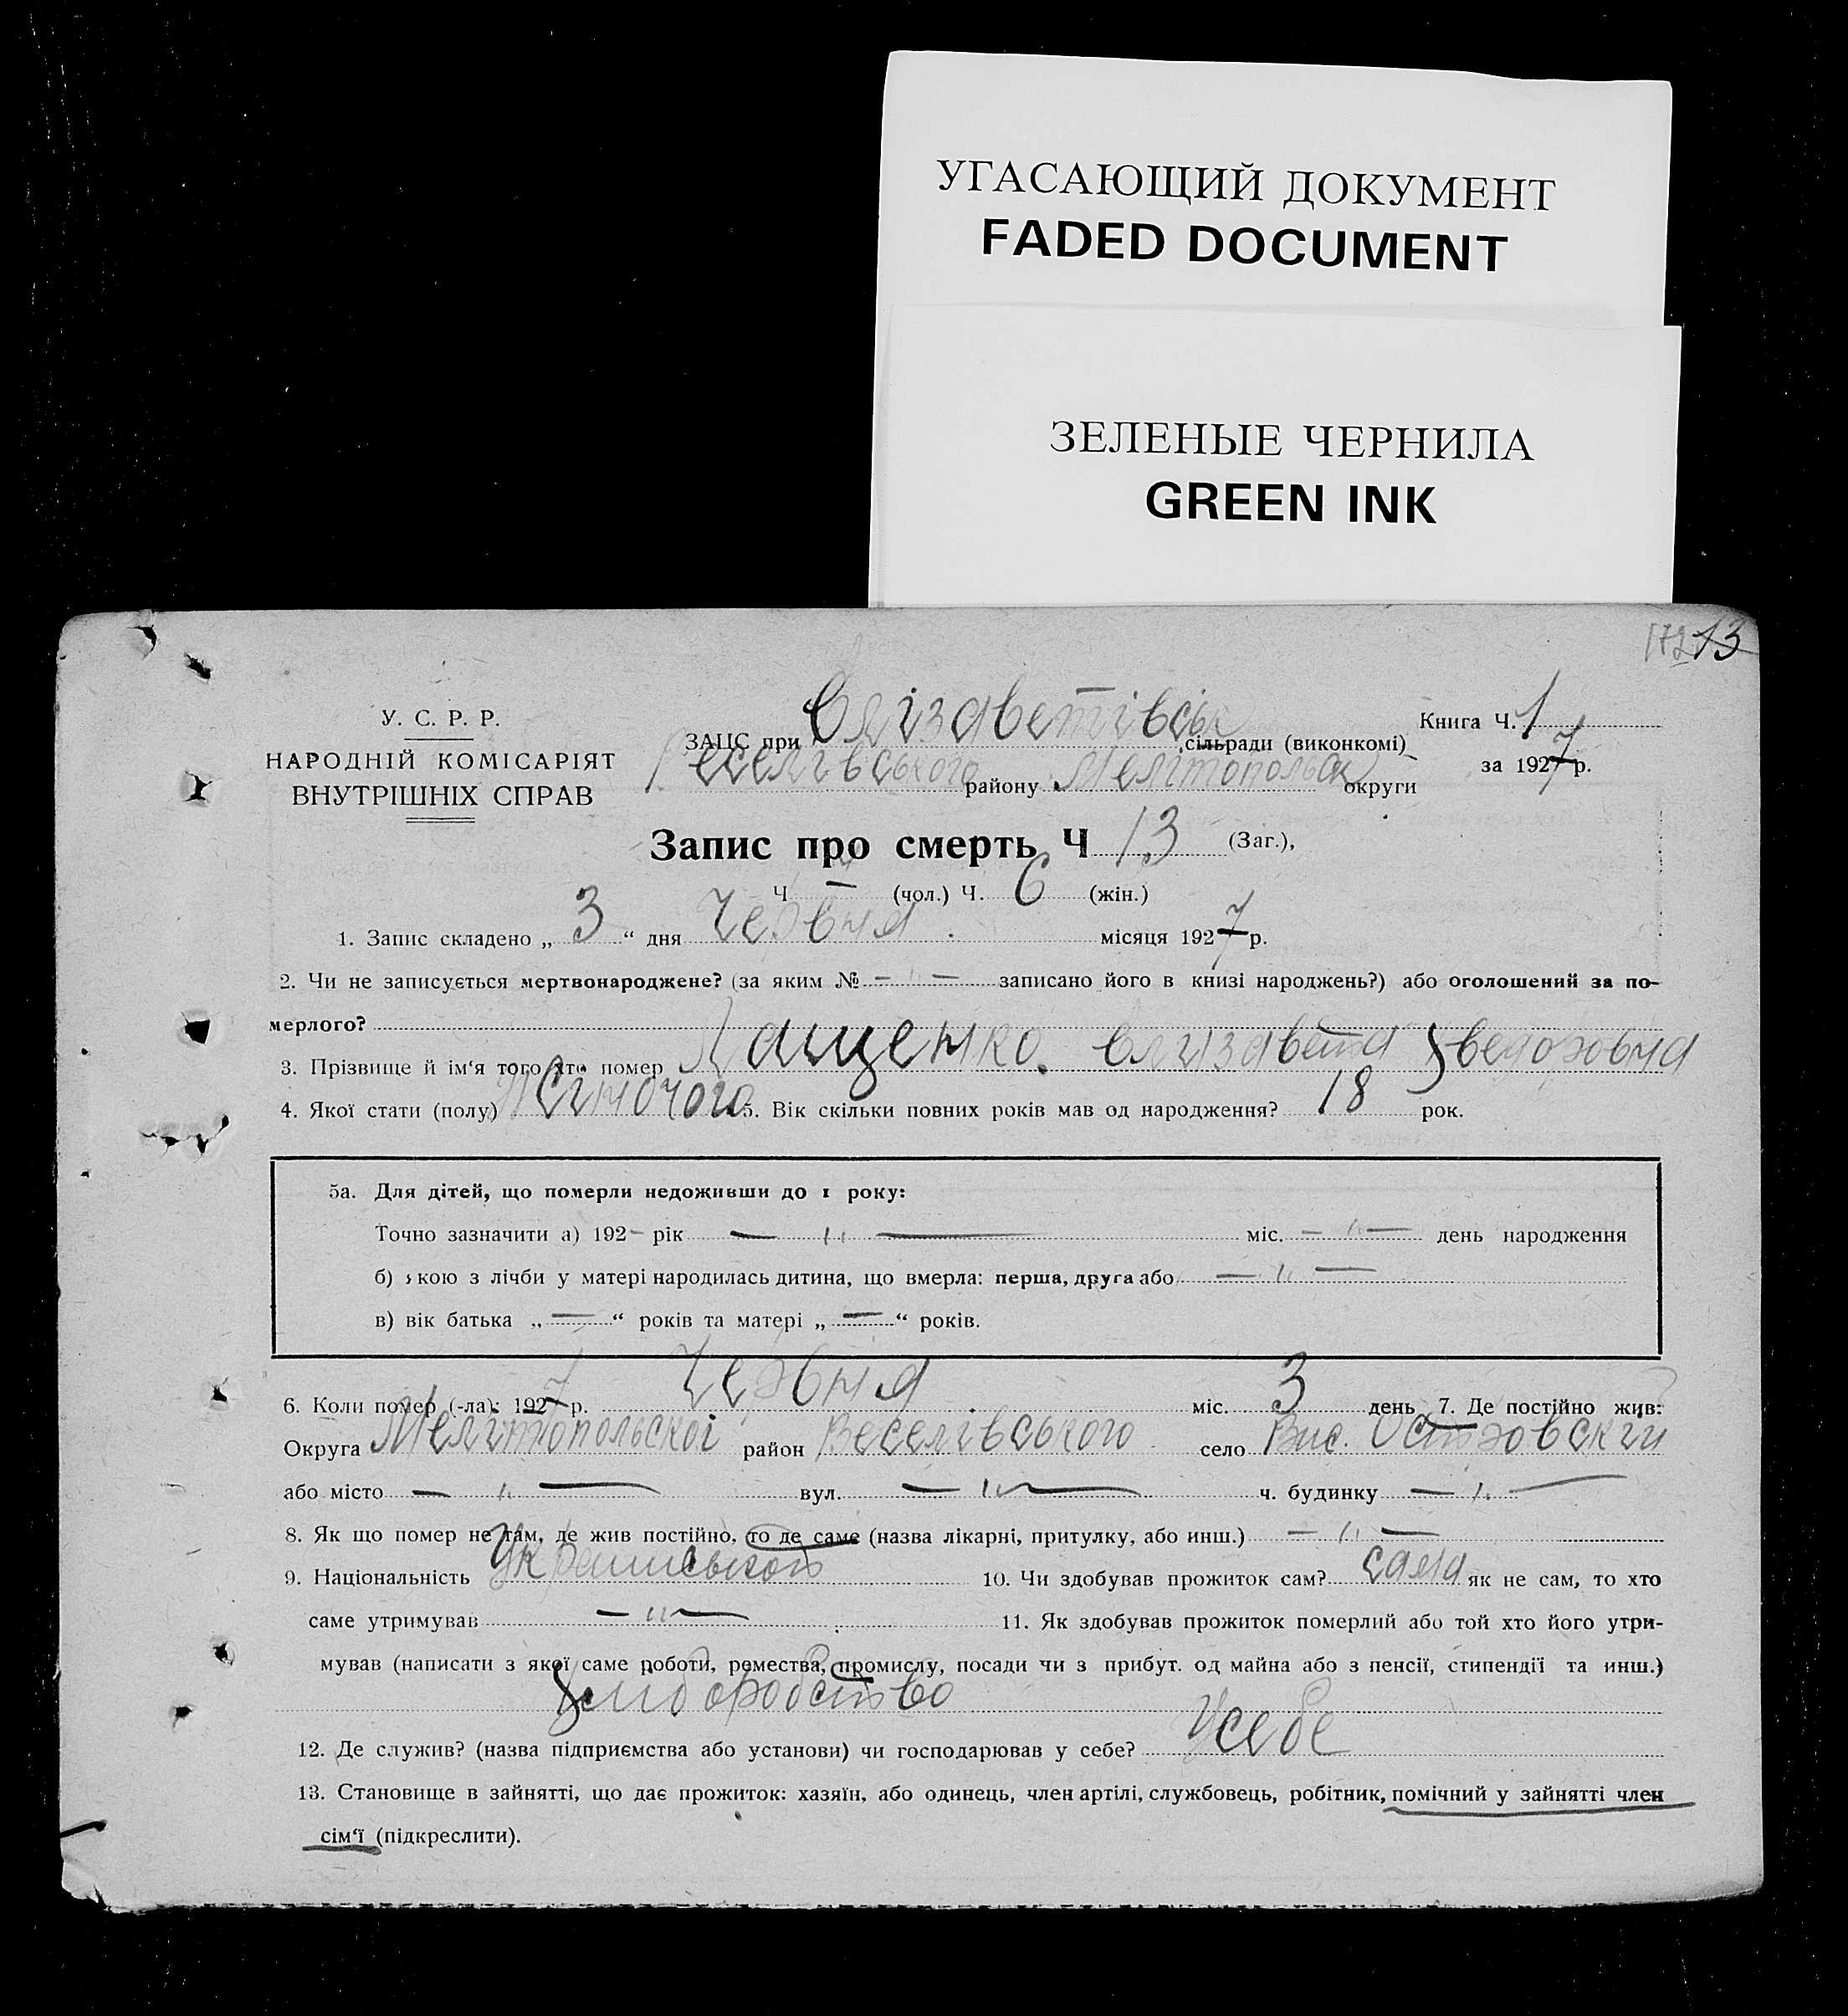 УГАСАЮЩИЙ ДОКУМЕНТ
FADED DOCUMENT
ЗЕЛЕНЫЕ ЧЕРНИЛА
GREEN INK
13
У. С. Р. Р.
НАРОДНІЙ КОМІСАРІЯТ
ВНУТРІШНІХ СПРАВ
ЗАЦС при Єлізаветівськ сільради (виконкомі)
Веселівського району Мелітопольськ округи
Книга Ч. 1
за 1927 р.
Запис про смерть Ч 13 (Заг.),
Ч — (чол.) Ч. 6 (жін.)
1. Запис складено „ 3 “ дня Червня місяця 1927 р.
2. Чи не записується мертвонароджене? (за яким № — " — записано його в книзі народжень?) або оголошений за по-
мерлого?
3. Прізвище й ім'я того хто помер Лащенко Єлизавета Хведоровна
4. Якої стати (полу) Жіночого 5. Вік скільки повних років мав од народження? 18 рок.
5а. Для дітей, що померли недоживши до 1 року:
Точно зазначити а) 192– рік — " — міс. — " — день народження
б) якою з лічби у матері народилась дитина, що вмерла: перша, друга або — " —
в) вік батька „ — “ років та матері „ — “ років.
6. Коли помер (-ла): 1927 р. Червня міс. 3 день 7. Де постійно жив:
Округа Мелітопольскої район Веселівського село Вис. Островский
або місто — " — вул. — " — ч. будинку — " —
8. Як що помер не там, де жив постійно, то де саме (назва лікарні, притулку, або инш.) — " —
9. Національність Українського 10. Чи здобував прожиток сам? сама як не сам, то хто
саме утримував — " — 11. Як здобував прожиток померлий або той хто його утри-
мував (написати з якої саме роботи, ремества, промислу, посади чи з прибут. од майна або з пенсії, стипендії та инш.)
Хліборобство
12. Де служив? (назва підприємства або установи) чи господарював у себе? У себе
13. Становище в зайнятті, що дає прожиток: хазяїн, або одинець, член артілі, службовець, робітник, помічний у зайнятті член
сім'ї (підкреслити).